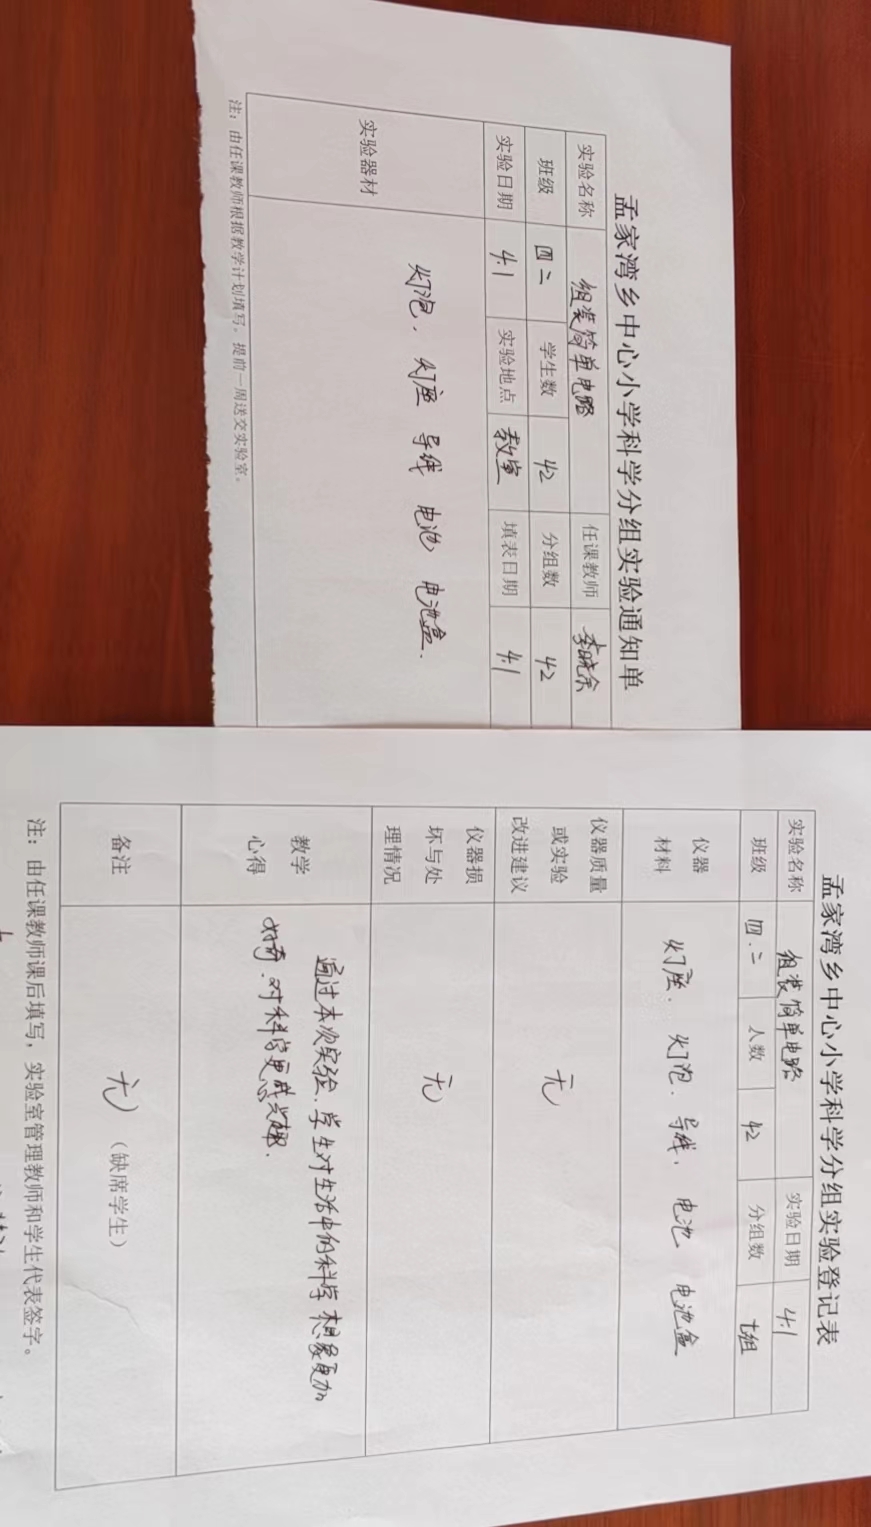 孟家湾乡中心小学科学分组实验通知单
实验名称 组装简单电路 任课教师 李晓余
班级 四二 学生数 42 分组数 42
实验日期 4.1 实验地点 教室 填表日期 4.1
实验器材 灯泡、灯座 导线 电池 电池盒.
注：由任课教师根据教学计划填写，提前一周送交实验室。
孟家湾乡中心小学科学分组实验登记表
实验名称 组装简单电路 实验日期 4.1
班级 四.二 人数 42 分组数 七组
仪器材料 灯座、灯泡、导线、电池 电池盒
仪器质量或实验改进建议 无
仪器损坏与处理情况 无
教学心得 通过本次实验、学生对生活中的科学想象更加
好奇.对科学更感兴趣.
备注 无 （缺席学生）
注：由任课教师课后填写，实验室管理教师和学生代表签字。